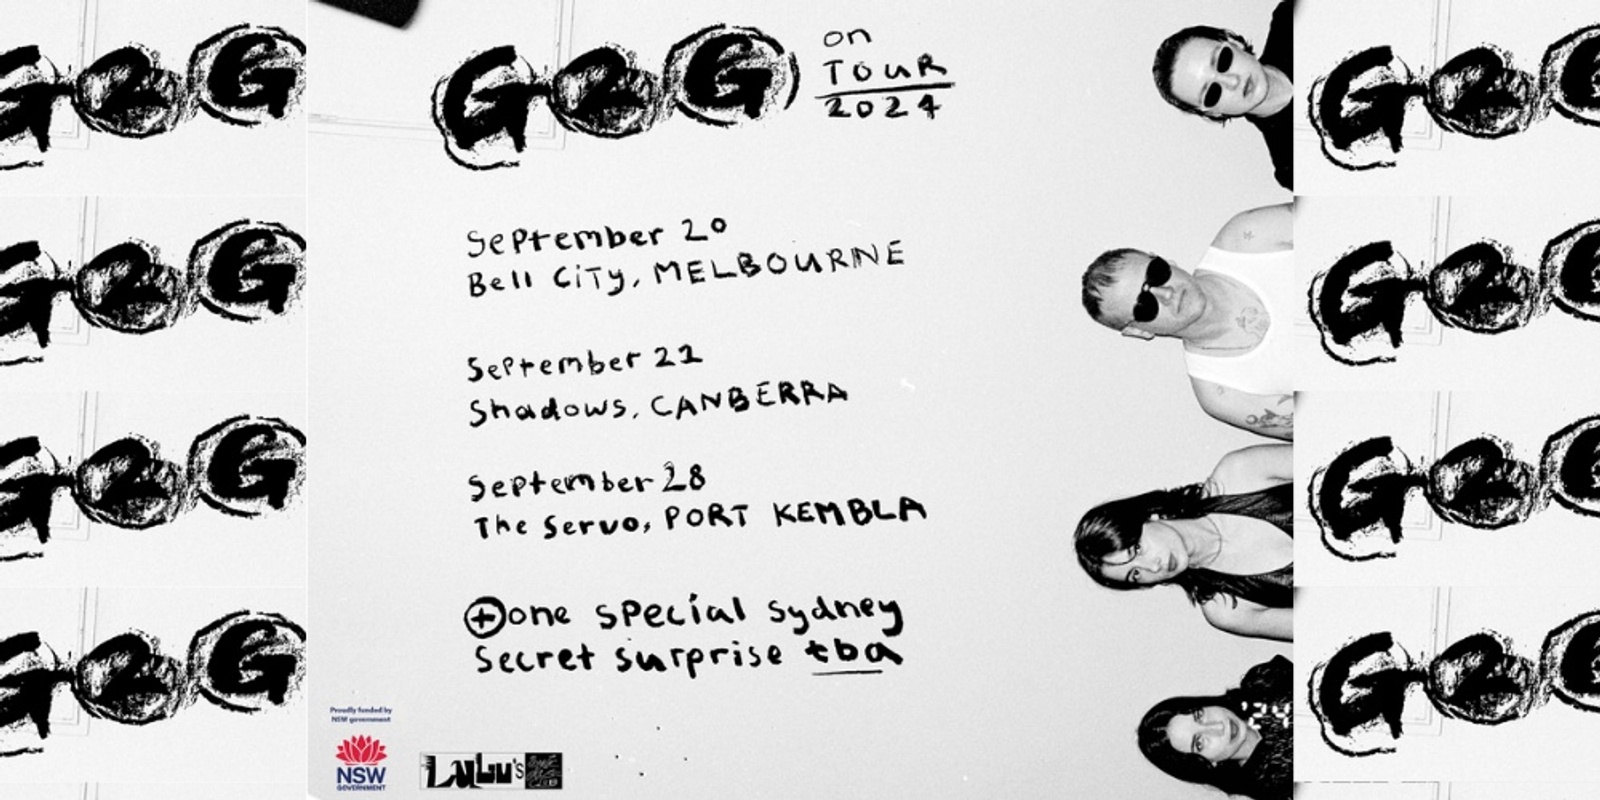 G2G
G2G
G2G
G2G
G2G
on
TOUR
2024
September 20
Bell CiTy, MELBOURNE
September 21
Shadows, CANBERRA
September 28
The Servo, PORT KEMBLA
+ one special sydney
Secret surprise tba
'24
Proudly funded by
NSW government
NSW
GOVERNMENT
LULU's
G2G
G2G
G2G
G2G